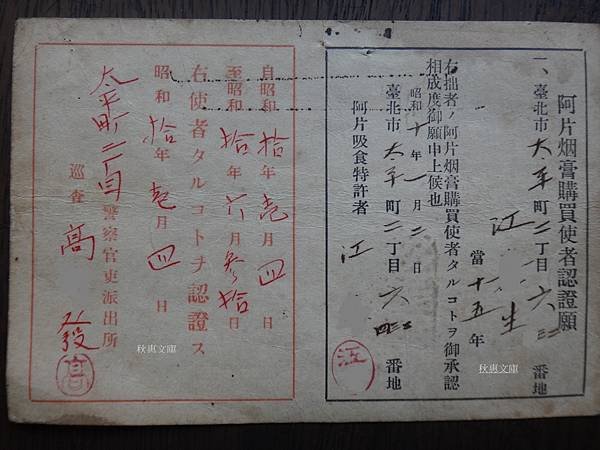 阿片烟膏購買使者認證願
一、臺北市太平町二丁目六三番地
江 生
當十五年
右拙者ノ阿片烟膏購買使者タルコトヲ御承認
相成度御願申上候也
昭和十年一月二日
臺北市太平町二丁目六 番地
阿片吸食特許者 江
江
自昭和拾年壱月四日
至昭和拾年六月參拾日
右使者タルコトヲ認證ス
昭和拾年壱月四日
太平町二丁目警察官吏派出所
巡査 高 發
高
秋惠文庫
秋惠文庫